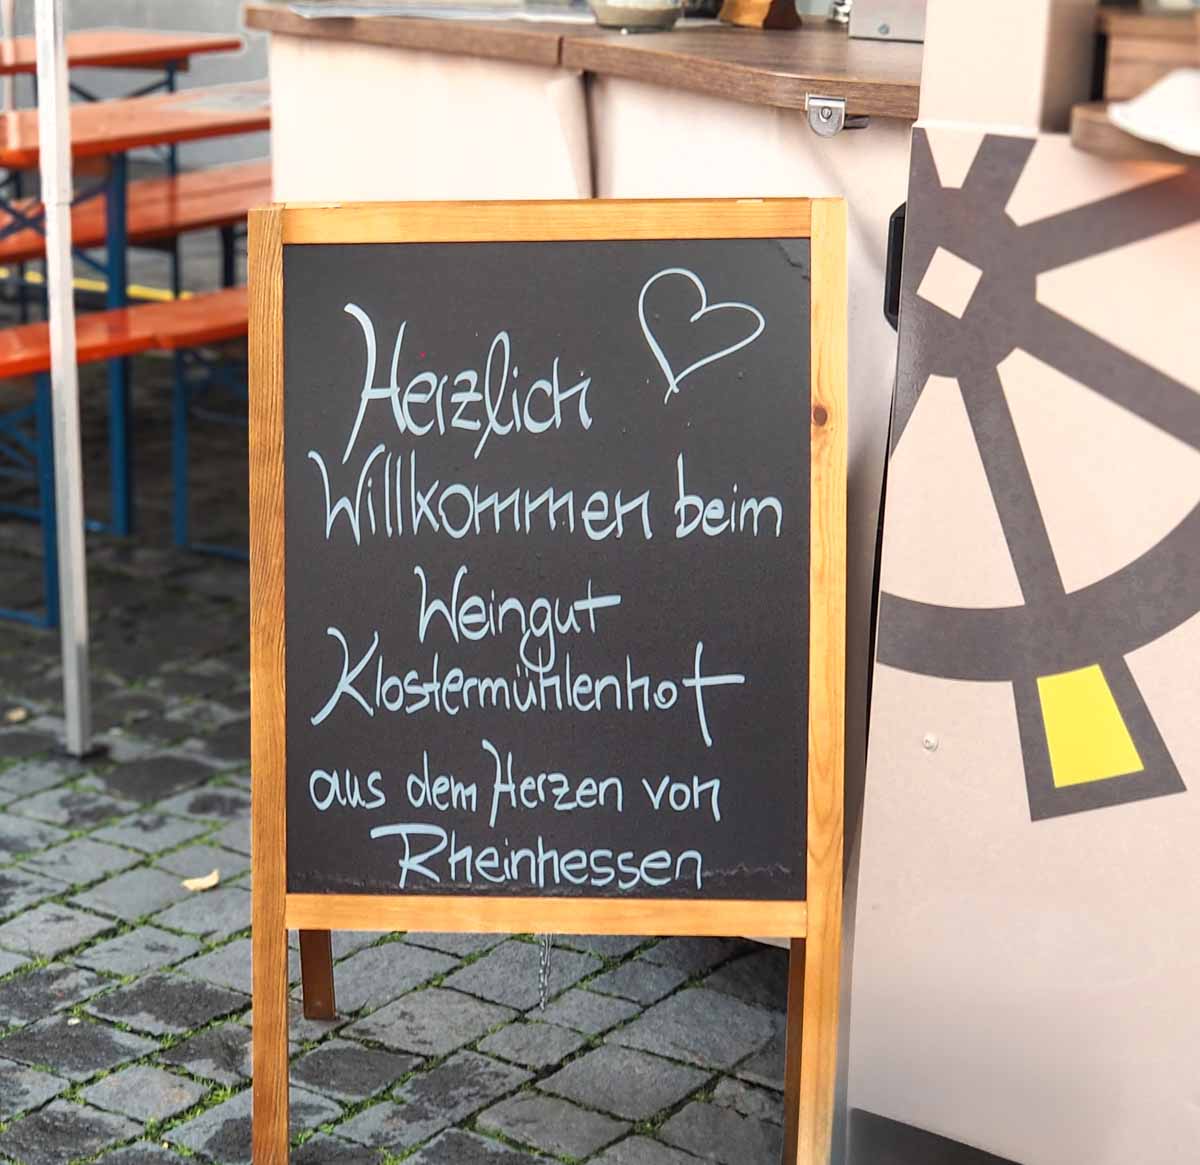 Herzlich
Willkommen beim
Weingut
Klostermühlenhof
aus dem Herzen von
Rheinhessen